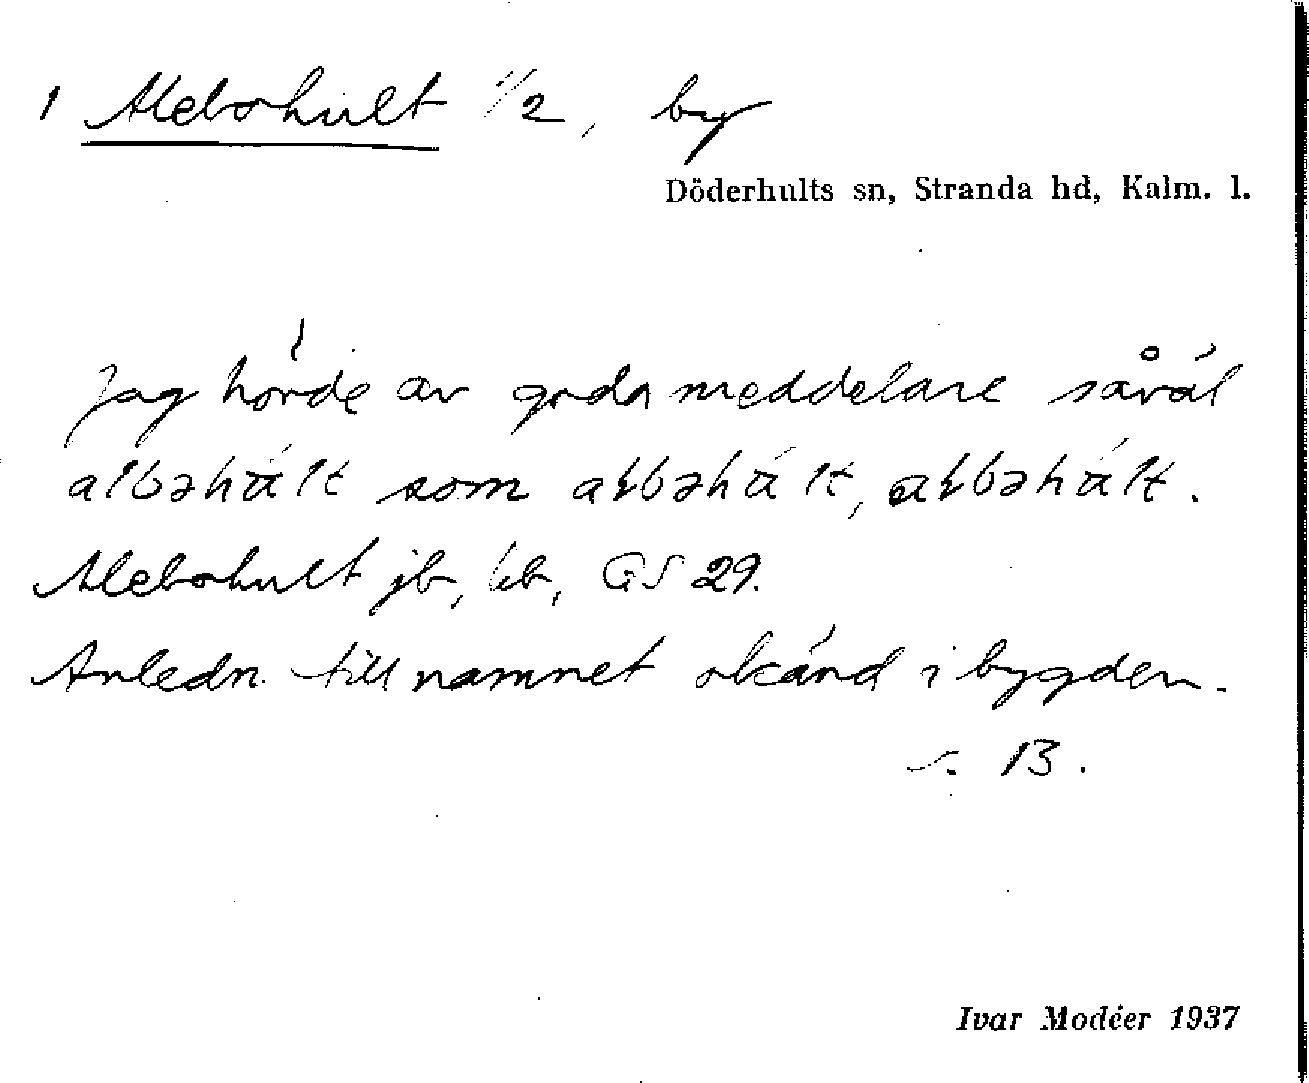 1 Alebohult 1/2, by
Döderhults sn, Stranda hd, Kalm. l.
Jag hörde av goda meddelare såväl
albəhúlt som aɫbəhúlt, aɫbəhúlt.
Alebohult jb, kb, GS 29.
Anledn. till namnet okänd i bygden.
s. 13.
Ivar Modéer 1937